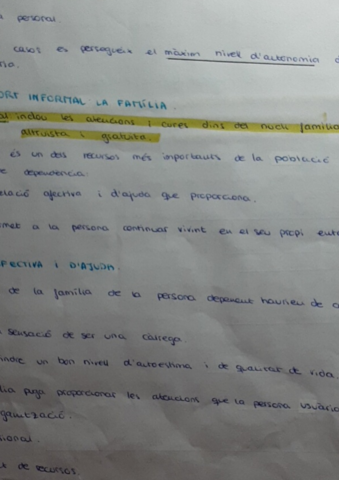 personal.
casos es persegueix el màxim nivell d'autonomia
ORT INFORMAL LA FAMÍLIA.
al inclou les atencions i cures dins del nucli familia
altruista i gratuïta.
és un dels recursos més importants de la població
dependència.
lació afectiva i d'ajuda que proporciona.
met a la persona continuar vivint en el seu propi ento
FECTIVA I D'AJUDA.
de la família de la persona dependent hauríeu de
sensació de ser una càrrega.
indre un bon nivell d'autoestima i de qualitat de vida
lia puga proporcionar les atencions que la persona usuària
ganització.
sional.
de recursos.